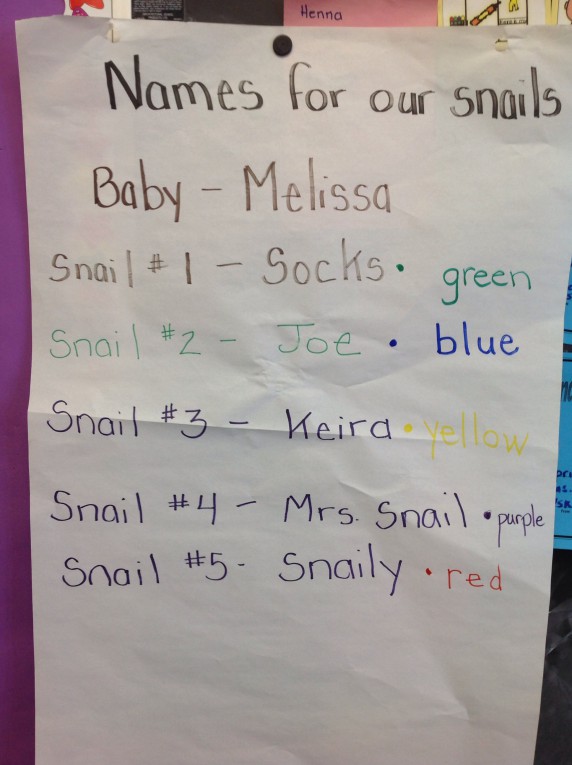 Henna
Names for our snails
Baby - Melissa
Snail #1 - Socks • green
Snail #2 - Joe • blue
Snail #3 - Keira • yellow
Snail #4 - Mrs. Snail • purple
Snail #5 - Snaily • red